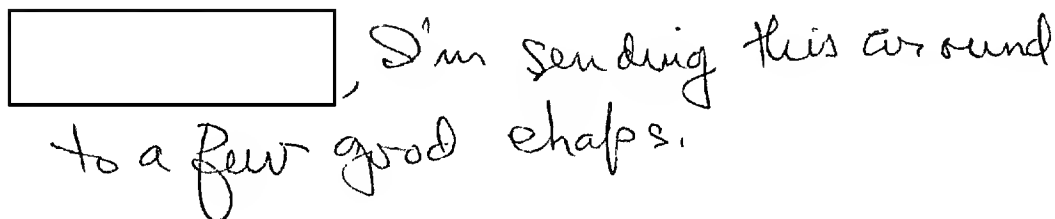 , I'm sending this around
to a few good chaps.